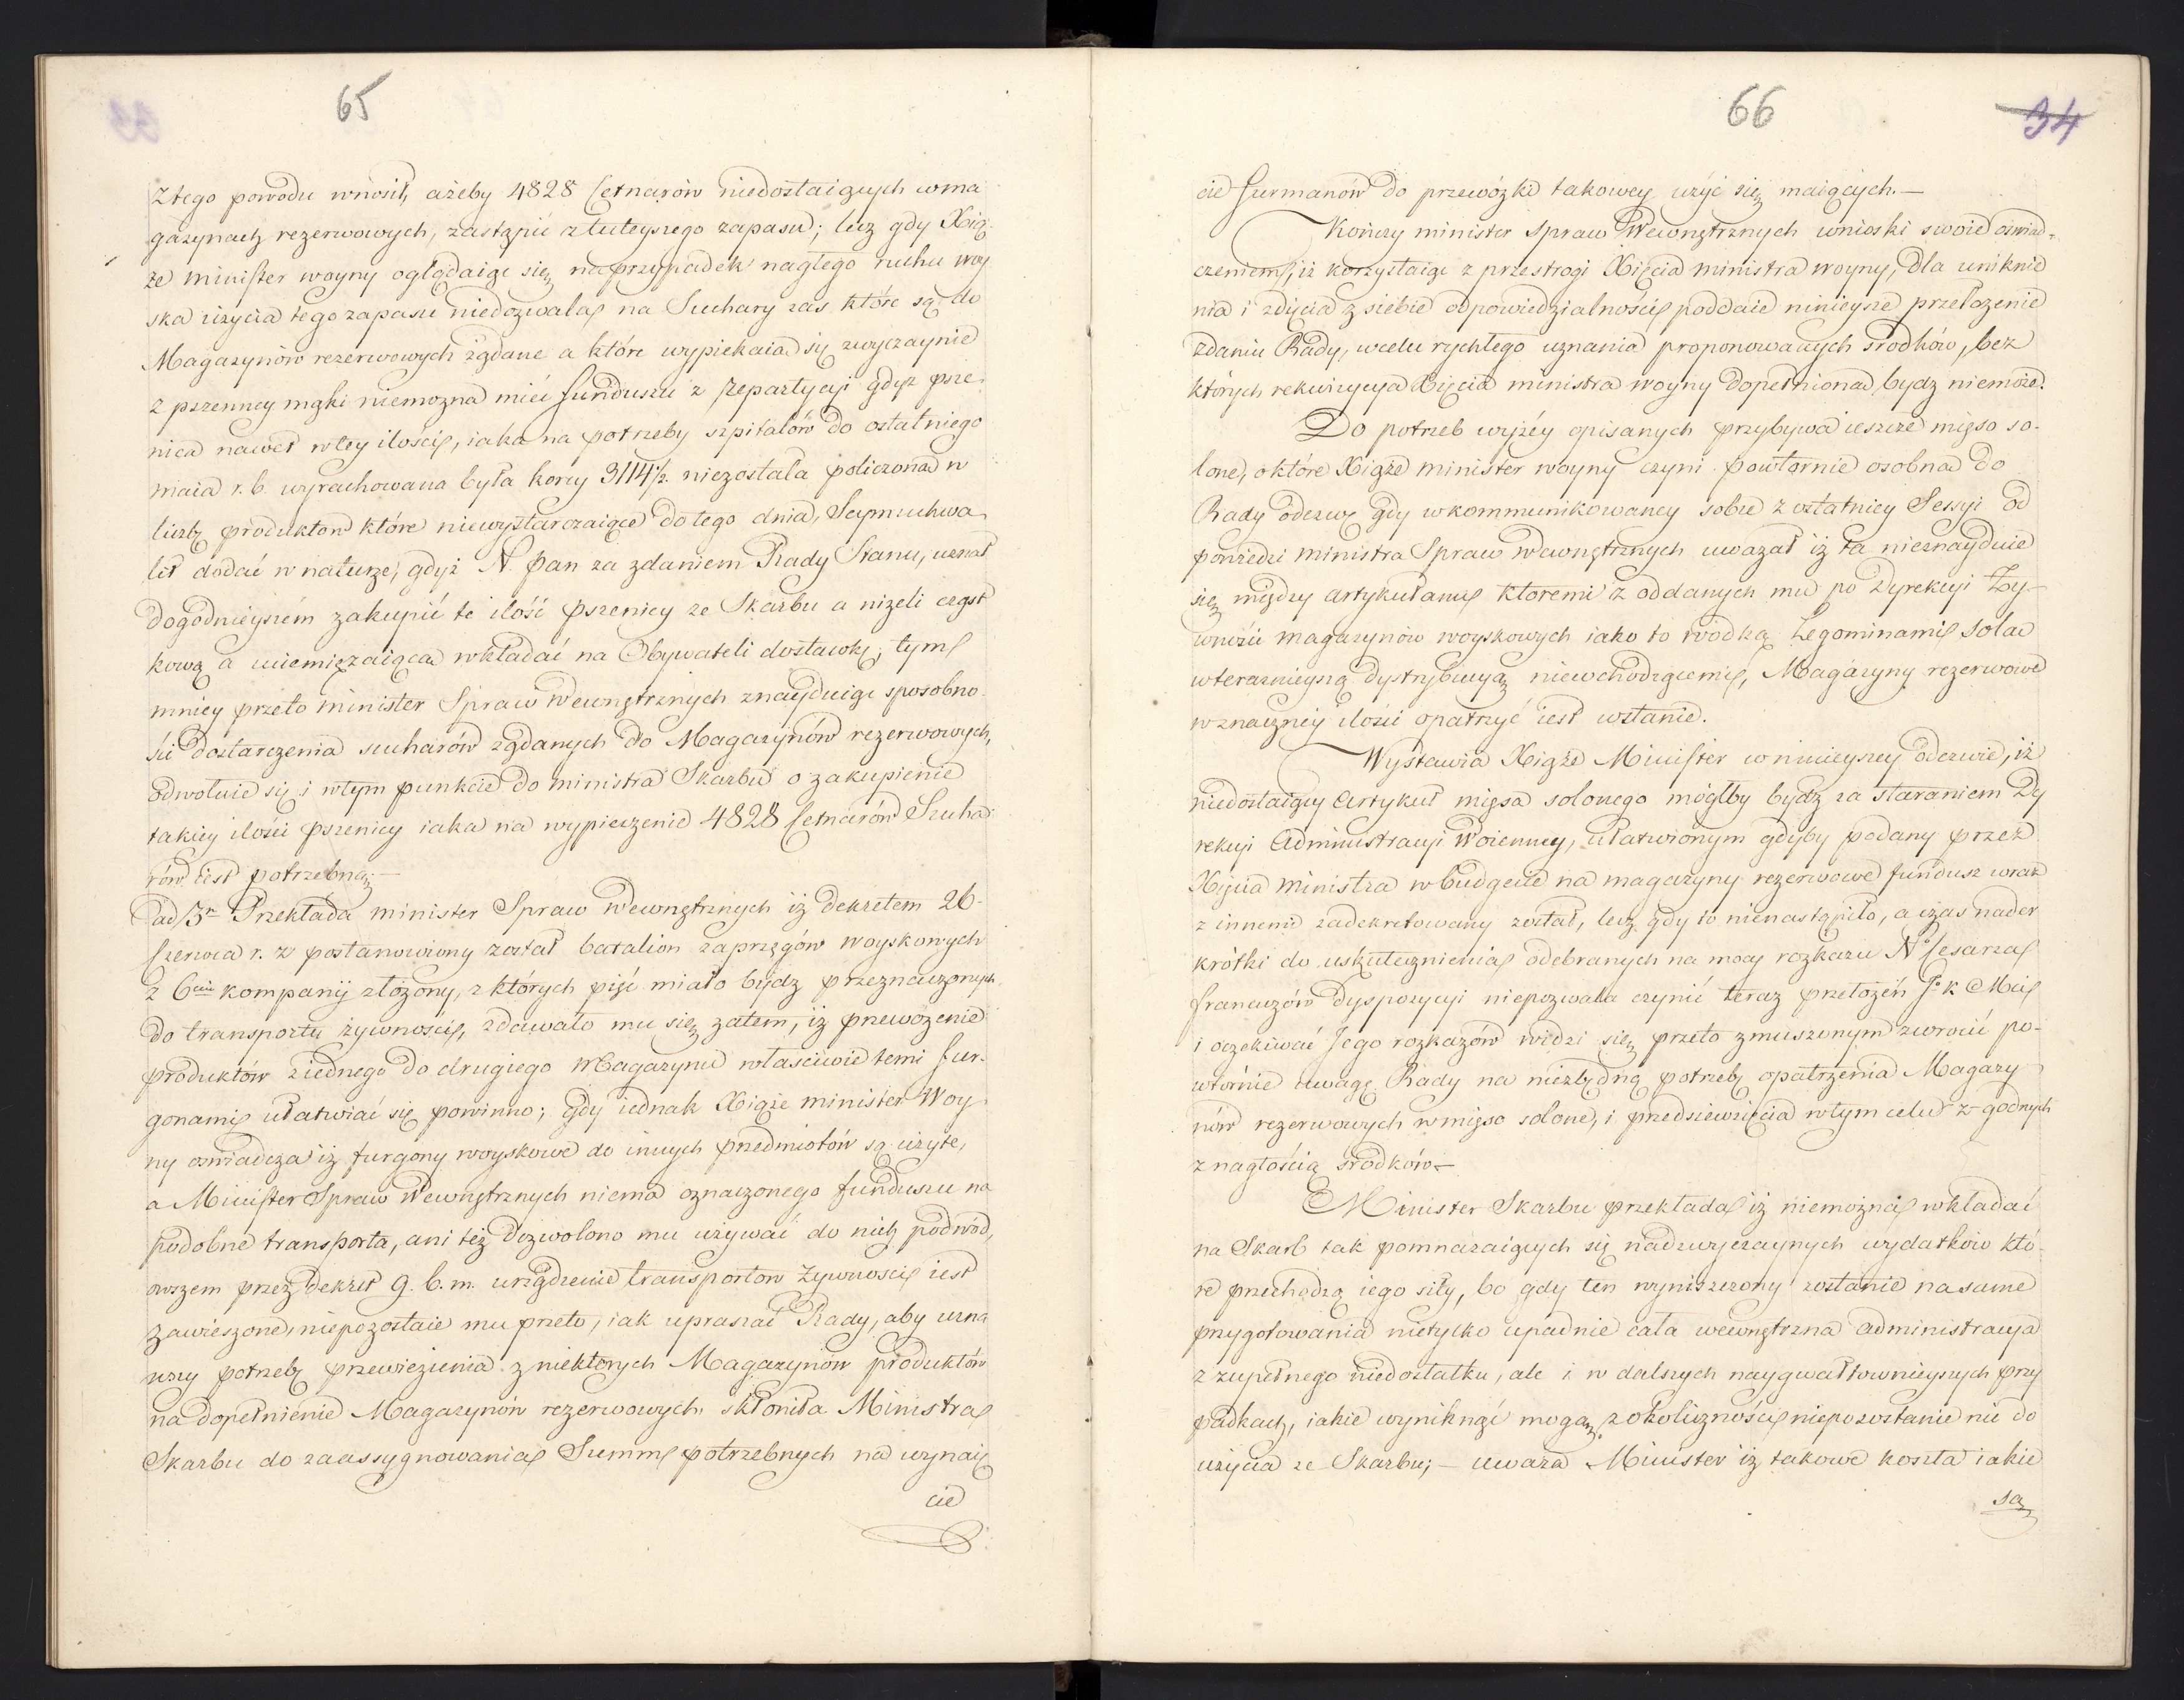 65
ztego powodu wnosił, ażeby 4828 Cetnarów niedostaiących wma
gazynach rezerwowych, zastąpić ztuteyszego zapasu; lecz gdy Xią
że minister woyny oglądaiąc się na przypadek nagłego ruchu woy
ska użycia tego zapasu niedozwala, na Suchary zas które są do
Magazynów rezerwowych żądane a które wypiekaią się zwyczaynie
z pszenney mąki niemożna mieć funduszu z repartycyi gdyż psze
nica nawet wtey ilości, iaka na potrzeby szpitalów do ostatniego
maia r. b. wyrachowana była korcy 3114½ niezostała policzona w
liczbę produktow które niewystarczaiące do tego dnia, Seym uchwa
lił dodać w naturze, gdyż N. Pan za zdaniem Rady Stanu, uznał
dogodnieyszém zakupić tę ilość pszenicy ze Skarbu a niżeli cząst
kową a uciemiężaiącą wkładać na Obywateli dostawkę; tym
mniey przeto minister Spraw Wewnętrznych znayduiąc sposobno
ści dostarczenia sucharów żądanych do Magazynów rezerwowych,
odwołuie się i wtym punkcie do ministra Skarbu o zakupienie
takiey ilości pszenicy iaka na wypieczenie 4828 Cetnarów Sucha
rów iest potrzebna;—
ad 3m Przekłada minister Spraw Wewnętrznych iż dekretem 26
Czerwca r. z postanowiony został batalion zaprzęgów woyskowych
z 6ciu kompanij złożony, z których pięć miało bydz przeznaczonych
do transportu żywności, zdawało mu się zatem, iż przewożenie
produktów ziednego do drugiego Magazynu właściwie temi fur-
gonami ułatwiać się powinno; gdy iednak Xiąże minister Woy
ny oswiadcza iż furgony woyskowe do innych przedmiotów są użyte,
a Minister Spraw Wewnętrznych niema oznaczonego funduszu na
podobne transporta, ani też dozwolono mu używać do nich podwód,
owszem przez dekret 9. b. m. urządzenie transportow żywności iest
zawieszone, niepozostaie mu przeto, iak upraszać Rady, aby uzna
wszy potrzebę przewiezienia z niektorych Magazynów produktów
na dopełnienie Magazynów rezerwowych skłoniła Ministra
Skarbu do zaassygnowania Summ potrzebnych na wynaię
cie
66
34
cie furmanów do przewózki takowey użyć się maiących.—
Kończy minister Spraw Wewnętrznych wnioski swoie oswiad-
czeniem, iż korzystaiąc z przestrogi Xięcia ministra woyny, dla uniknie
nia i zdięcia z siebie odpowiedzialności poddaie ninieysze przełożenie
zdaniu Rady, wcelu rychłego uznania proponowanych srodków, bez
których rekwizycya Xięcia ministra woyny dopełniona bydz niemoże.
Do potrzeb wyżéy opisanych przybywa ieszcze mięso so-
lone, o które Xiąże minister woyny czyni powtornie osobna do
Rady odezwę gdy wkommunikowaney sobie z ostatniey Sessyi od
powiedzi ministra Spraw Wewnętrznych uważał iż ta nieznayduie
się między artykułami ktoremi z oddanych mu po Dyrekcyi Ży-
wności magazynów woyskowych iako to wodką Legominami solą
wteraznieyszą dystrybucyą niewchodzącemi, Magazyny rezerwowe
wznaczney ilości opatrzyć iest wstanie.
Wystawia Xiąże Minister wninieyszey odezwie, iż
niedostaiący artykuł mięsa solonego mógłby bydz za staraniem Dy
rekcyi Administracyi Woienney, ułatwionym gdyby podany przez
Xięcia ministra w budgecie na magazyny rezerwowe fundusz wraz
z innemi zadekretowany został, lecz gdy to nienastąpiło, a czas nader
krótki do uskutecznienia odebranych na mocy rozkazu No Cesarza
francuzów dyspozycyi niepozwala czynić teraz przełożeń J. K Mci
i oczekiwać Jego rozkazów widzi się przeto zmuszonym zwrocić po-
wtórnie uwagę Rady na niezbędną potrzebę opatrzenia Magazy
nów rezerwowych wmięso solone, i przedsiewzięcia wtym celu zgodnych
z nagłością srodków—
Minister Skarbu przekłada iż niemożna wkładać
na Skarb tak pomnażaiących się nadzwyczaynych wydatków któ-
re przechodzą iego siły, bo gdy ten wyniszczony zostanie na same
przygotowania nietylko upadnie cała wewnętrzna administracya
z zupełnego niedostatku, ale i w dalszych naygwałtownieyszych przy
padkach, iakie wyniknąć mogą z okoliczności niepozostanie nic do
użycia ze Skarbu;— uważa Minister iż takowe koszta iakie
są